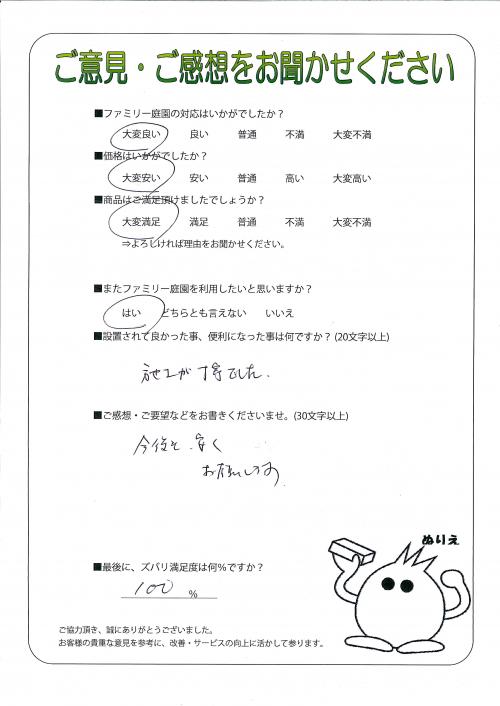 ご意見・ご感想をお聞かせください
■ファミリー庭園の対応はいかがでしたか？
大変良い 良い 普通 不満 大変不満
■価格はいかがでしたか？
大変安い 安い 普通 高い 大変高い
■商品はご満足頂けましたでしょうか？
大変満足 満足 普通 不満 大変不満
⇒よろしければ理由をお聞かせください。
■またファミリー庭園を利用したいと思いますか？
はい どちらとも言えない いいえ
■設置されて良かった事、便利になった事は何ですか？(20文字以上)
施工が丁寧でした.
■ご感想・ご要望などをお書きくださいませ。(30文字以上)
今後も安く
お願いします
ぬりえ
■最後に、ズバリ満足度は何%ですか？
100 %
ご協力頂き、誠にありがとうございました。
お客様の貴重な意見を参考に、改善・サービスの向上に活かして参ります。